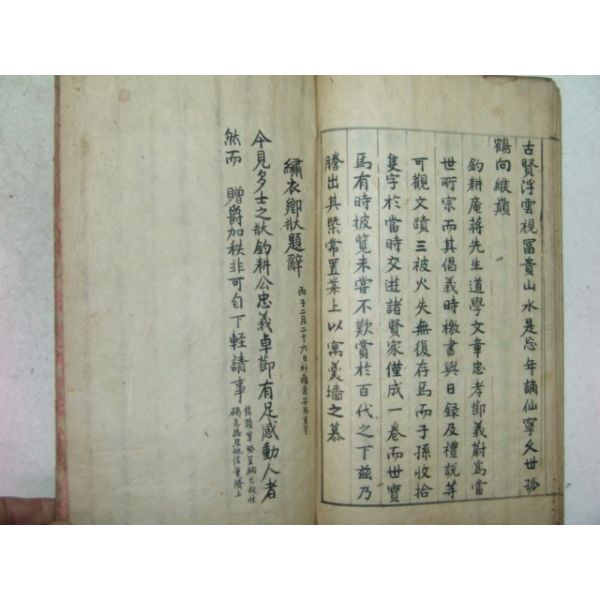 古賢浮雲視冨貴山水是忘年謫仙寧久世孤
鶴向緱巔
釣耕庵蔣先生道學文章忠孝節義蔚爲當
世所宗而其倡義時檄書與日録及禮說等
可觀文蹟三被火失無復存焉而子孫收拾
隻字於當時交遊諸賢家僅成一卷而世寶
焉有時披覽未嘗不歎賞於百代之下玆乃
謄出其槩常置案上以寓羹墻之慕
繡衣鄕狀題辭
丙子二月二十六日
今見多士之狀釣耕公忠義卓節有足感動人者
然而 贈爵加秩非可自下輕請事